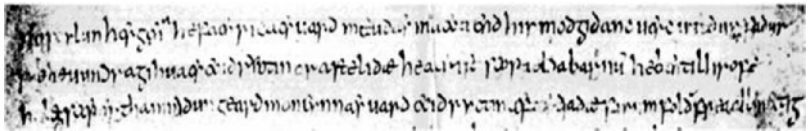 Nu scylun hergan hefaenricaes uard metudæs maecti end his modgidanc uerc uuldurfadur
sue he uundra gihuaes eci dryctin or astelidæ he aerist scop aelda barnum heben til hrofe
haleg scepen. tha middungeard moncynnæs uard eci dryctin æfter tiadæ firum foldu frea allmectig